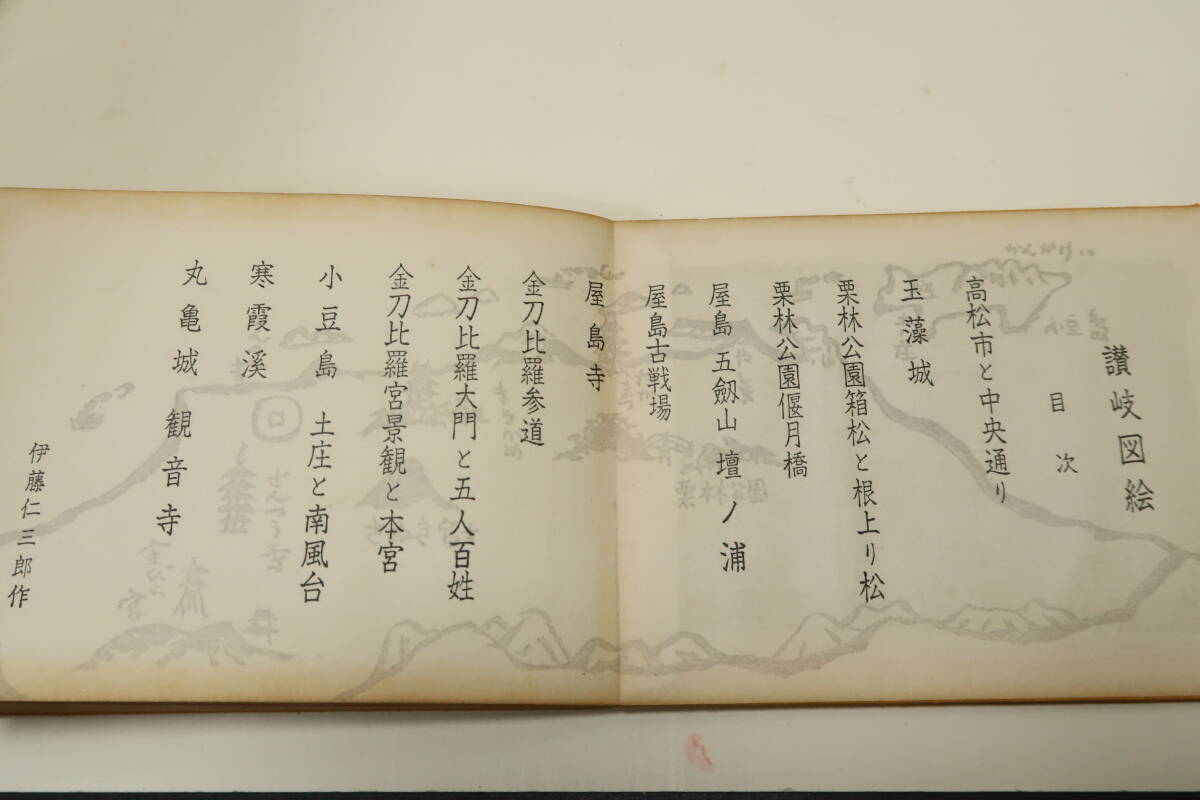 讃岐図絵
目次
高松市と中央通り
玉藻城
栗林公園箱松と根上り松
栗林公園偃月橋
屋島 五劔山 壇ノ浦
屋島古戦場
屋島寺
金刀比羅参道
金刀比羅大門と五人百姓
金刀比羅宮景観と本宮
小豆島 土庄と南風台
寒霞溪
丸亀城 観音寺
伊藤仁三郎作
栗林公園
ぜんつう寺